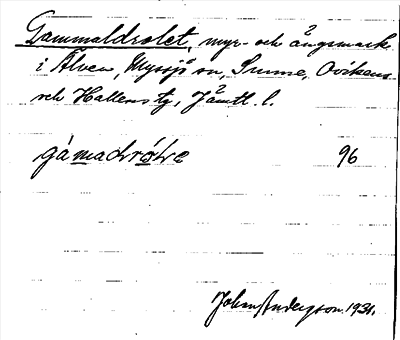 Gammaldrolet, myr- och ångsmark
i Älven, Myssjö sn, Sunne, Ovikens
och Hallens tg, Jämtl. l.
gàmadrǫ̀lɛ 96
John Anderson 1931.